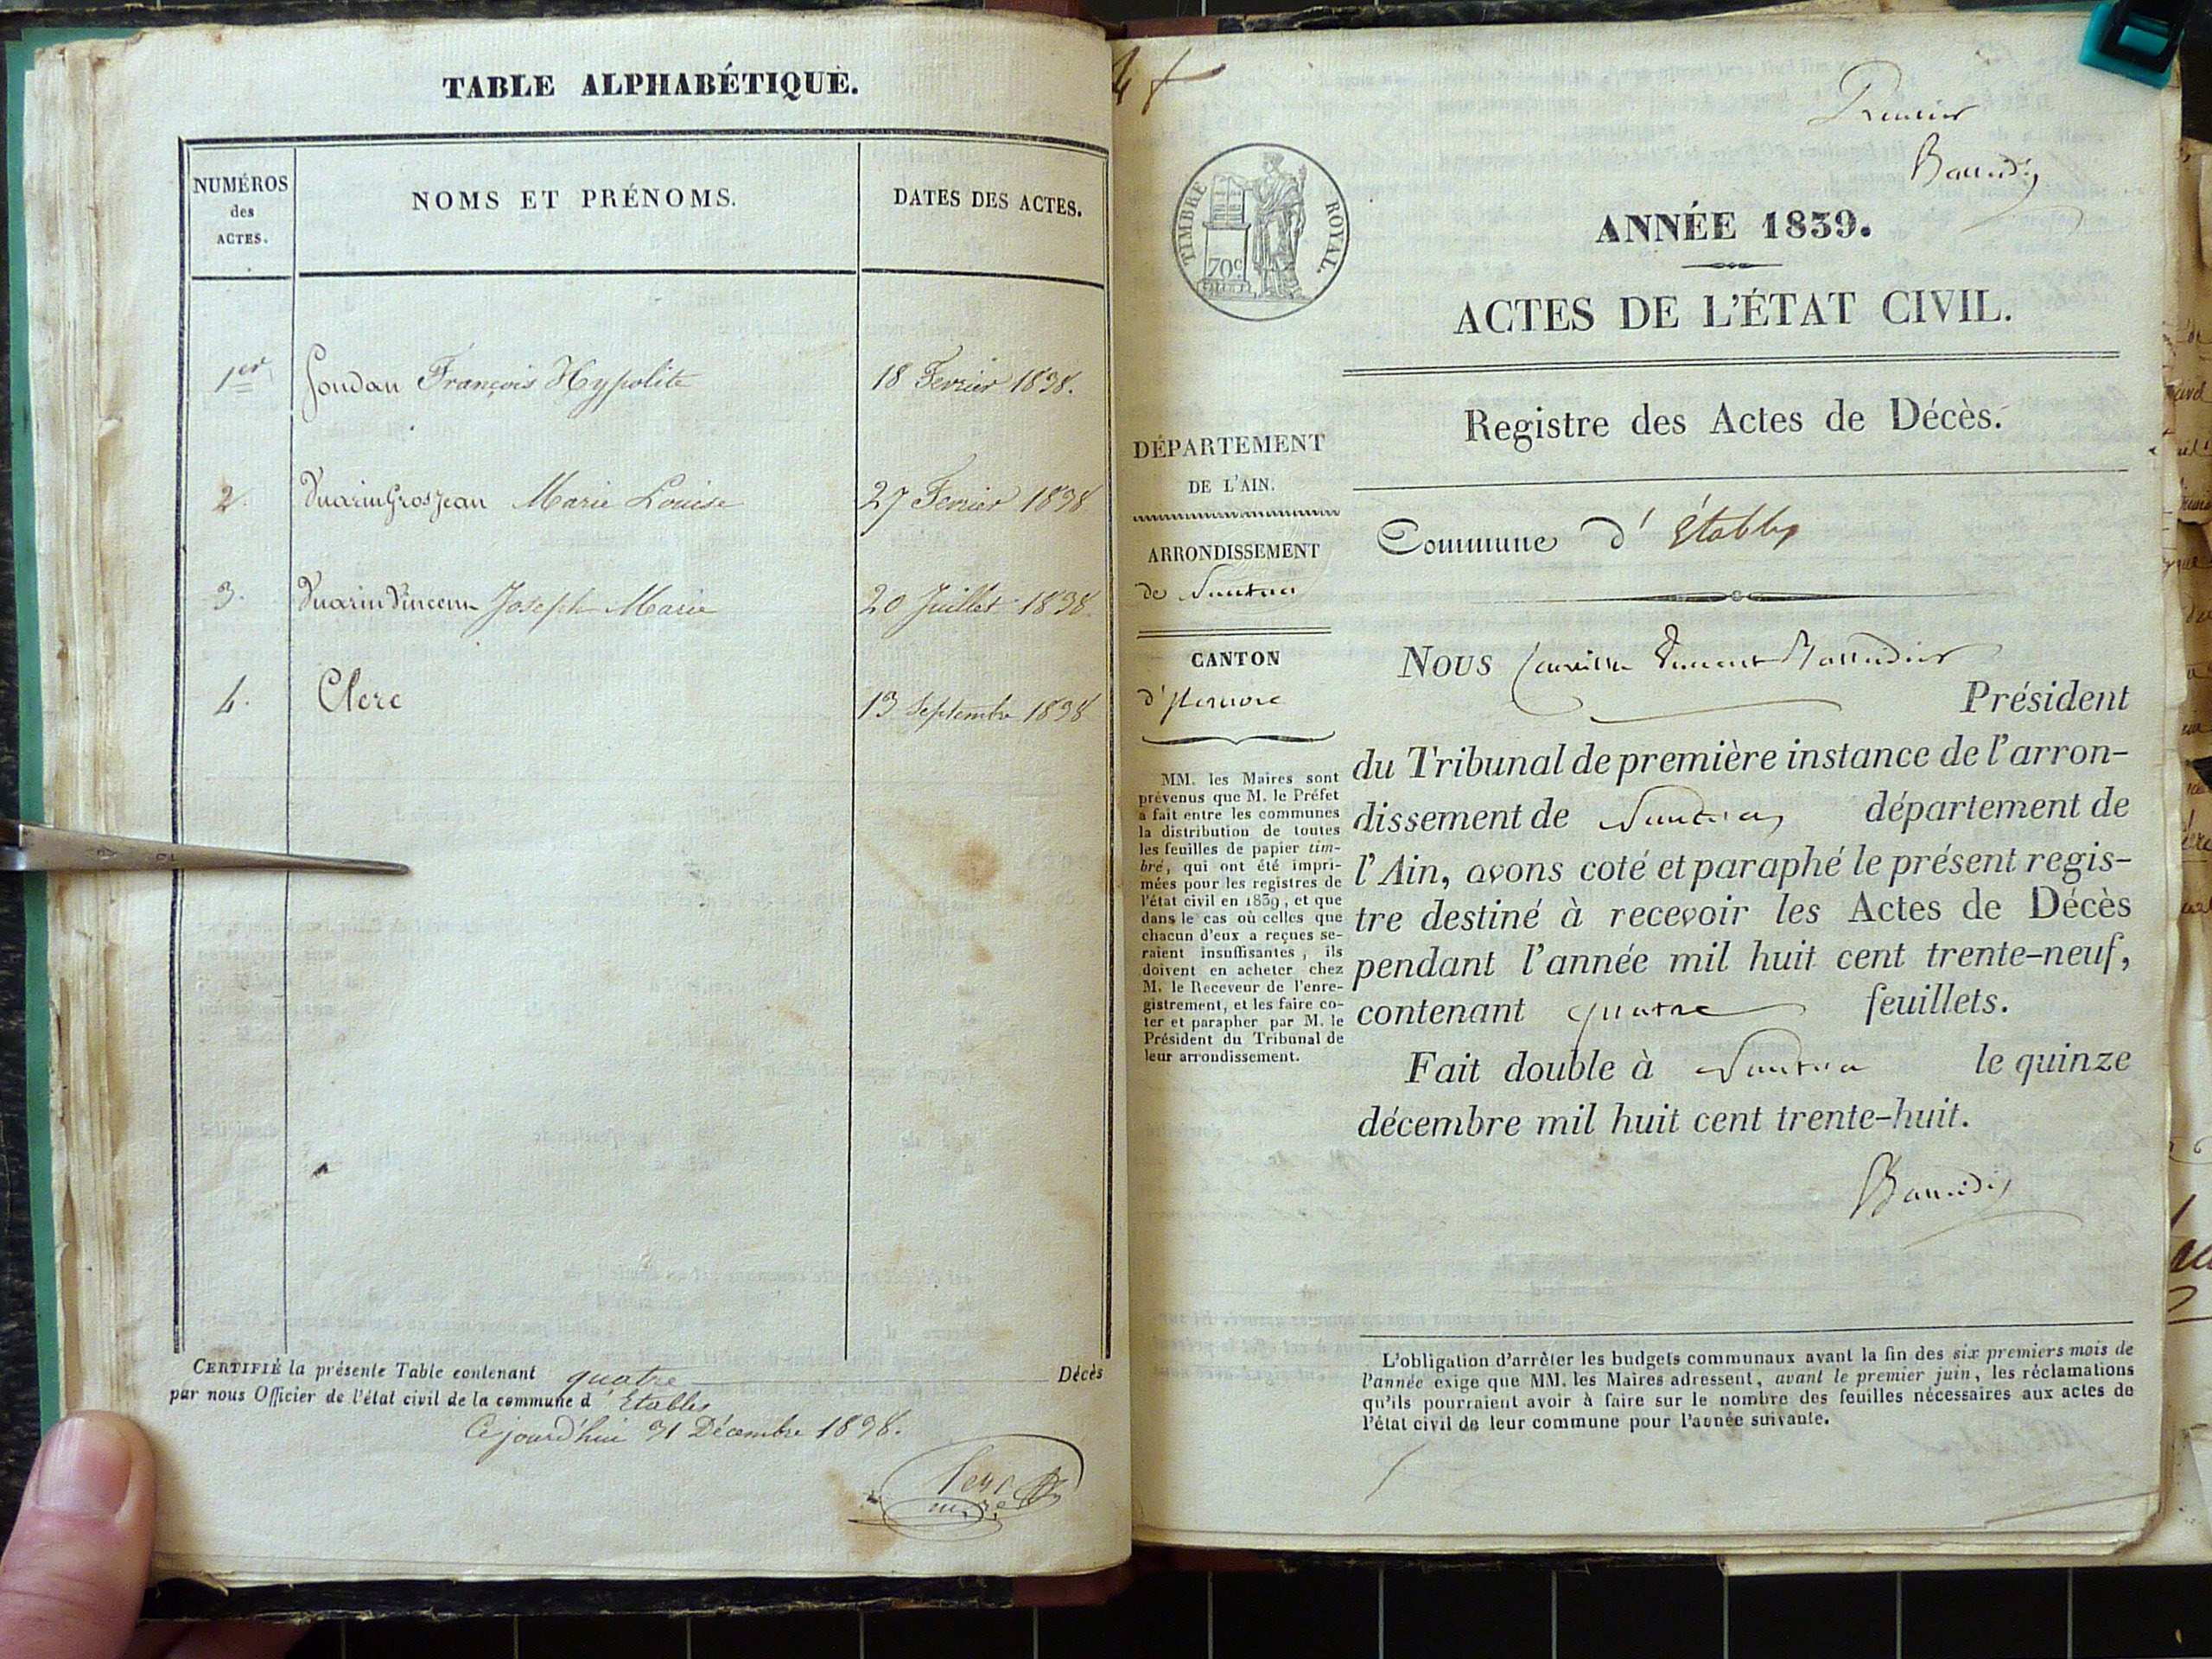 TABLE ALPHABÉTIQUE.
NUMÉROS
des
ACTES.
NOMS ET PRÉNOMS.
DATES DES ACTES.
1er Goudan François Hypolite 18 Fevrier 1838.
2. Grosjean Marie Louise 27 Fevrier 1838
3. Joseph Marie 20 Juillet 1838.
4. Clerc 13 Septembre 1838
CERTIFIÉ la présente Table contenant quatre Décès
par nous Officier de l'état civil de la commune d'Etables
Ce jourd'hui 31 Décembre 1838.
Clerc
Premier
TIMBRE ROYAL.
70c
ANNÉE 1839.
ACTES DE L'ÉTAT CIVIL.
Registre des Actes de Décès.
DÉPARTEMENT
DE L'AIN.
ARRONDISSEMENT
de Nantua
CANTON
d'Izernore
MM. les Maires sont
prévenus que M. le Préfet
a fait entre les communes
la distribution de toutes
les feuilles de papier tim-
bré, qui ont été impri-
mées pour les registres de
l'état civil en 1839, et que
dans le cas où celles que
chacun d'eux a reçues se-
raient insuffisantes, ils
doivent en acheter chez
M. le Receveur de l'enre-
gistrement, et les faire co-
ter et parapher par M. le
Président du Tribunal de
leur arrondissement.
Commune d'Étables
Nous
Président
du Tribunal de première instance de l'arron-
dissement de Nantua département de
l'Ain, avons coté et paraphé le présent regis-
tre destiné à recevoir les Actes de Décès
pendant l'année mil huit cent trente-neuf,
contenant quatre feuillets.
Fait double à Nantua le quinze
décembre mil huit cent trente-huit.
L'obligation d'arrêter les budgets communaux avant la fin des six premiers mois de
l'année exige que MM. les Maires adressent, avant le premier juin, les réclamations
qu'ils pourraient avoir à faire sur le nombre des feuilles nécessaires aux actes de
l'état civil de leur commune pour l'année suivante.